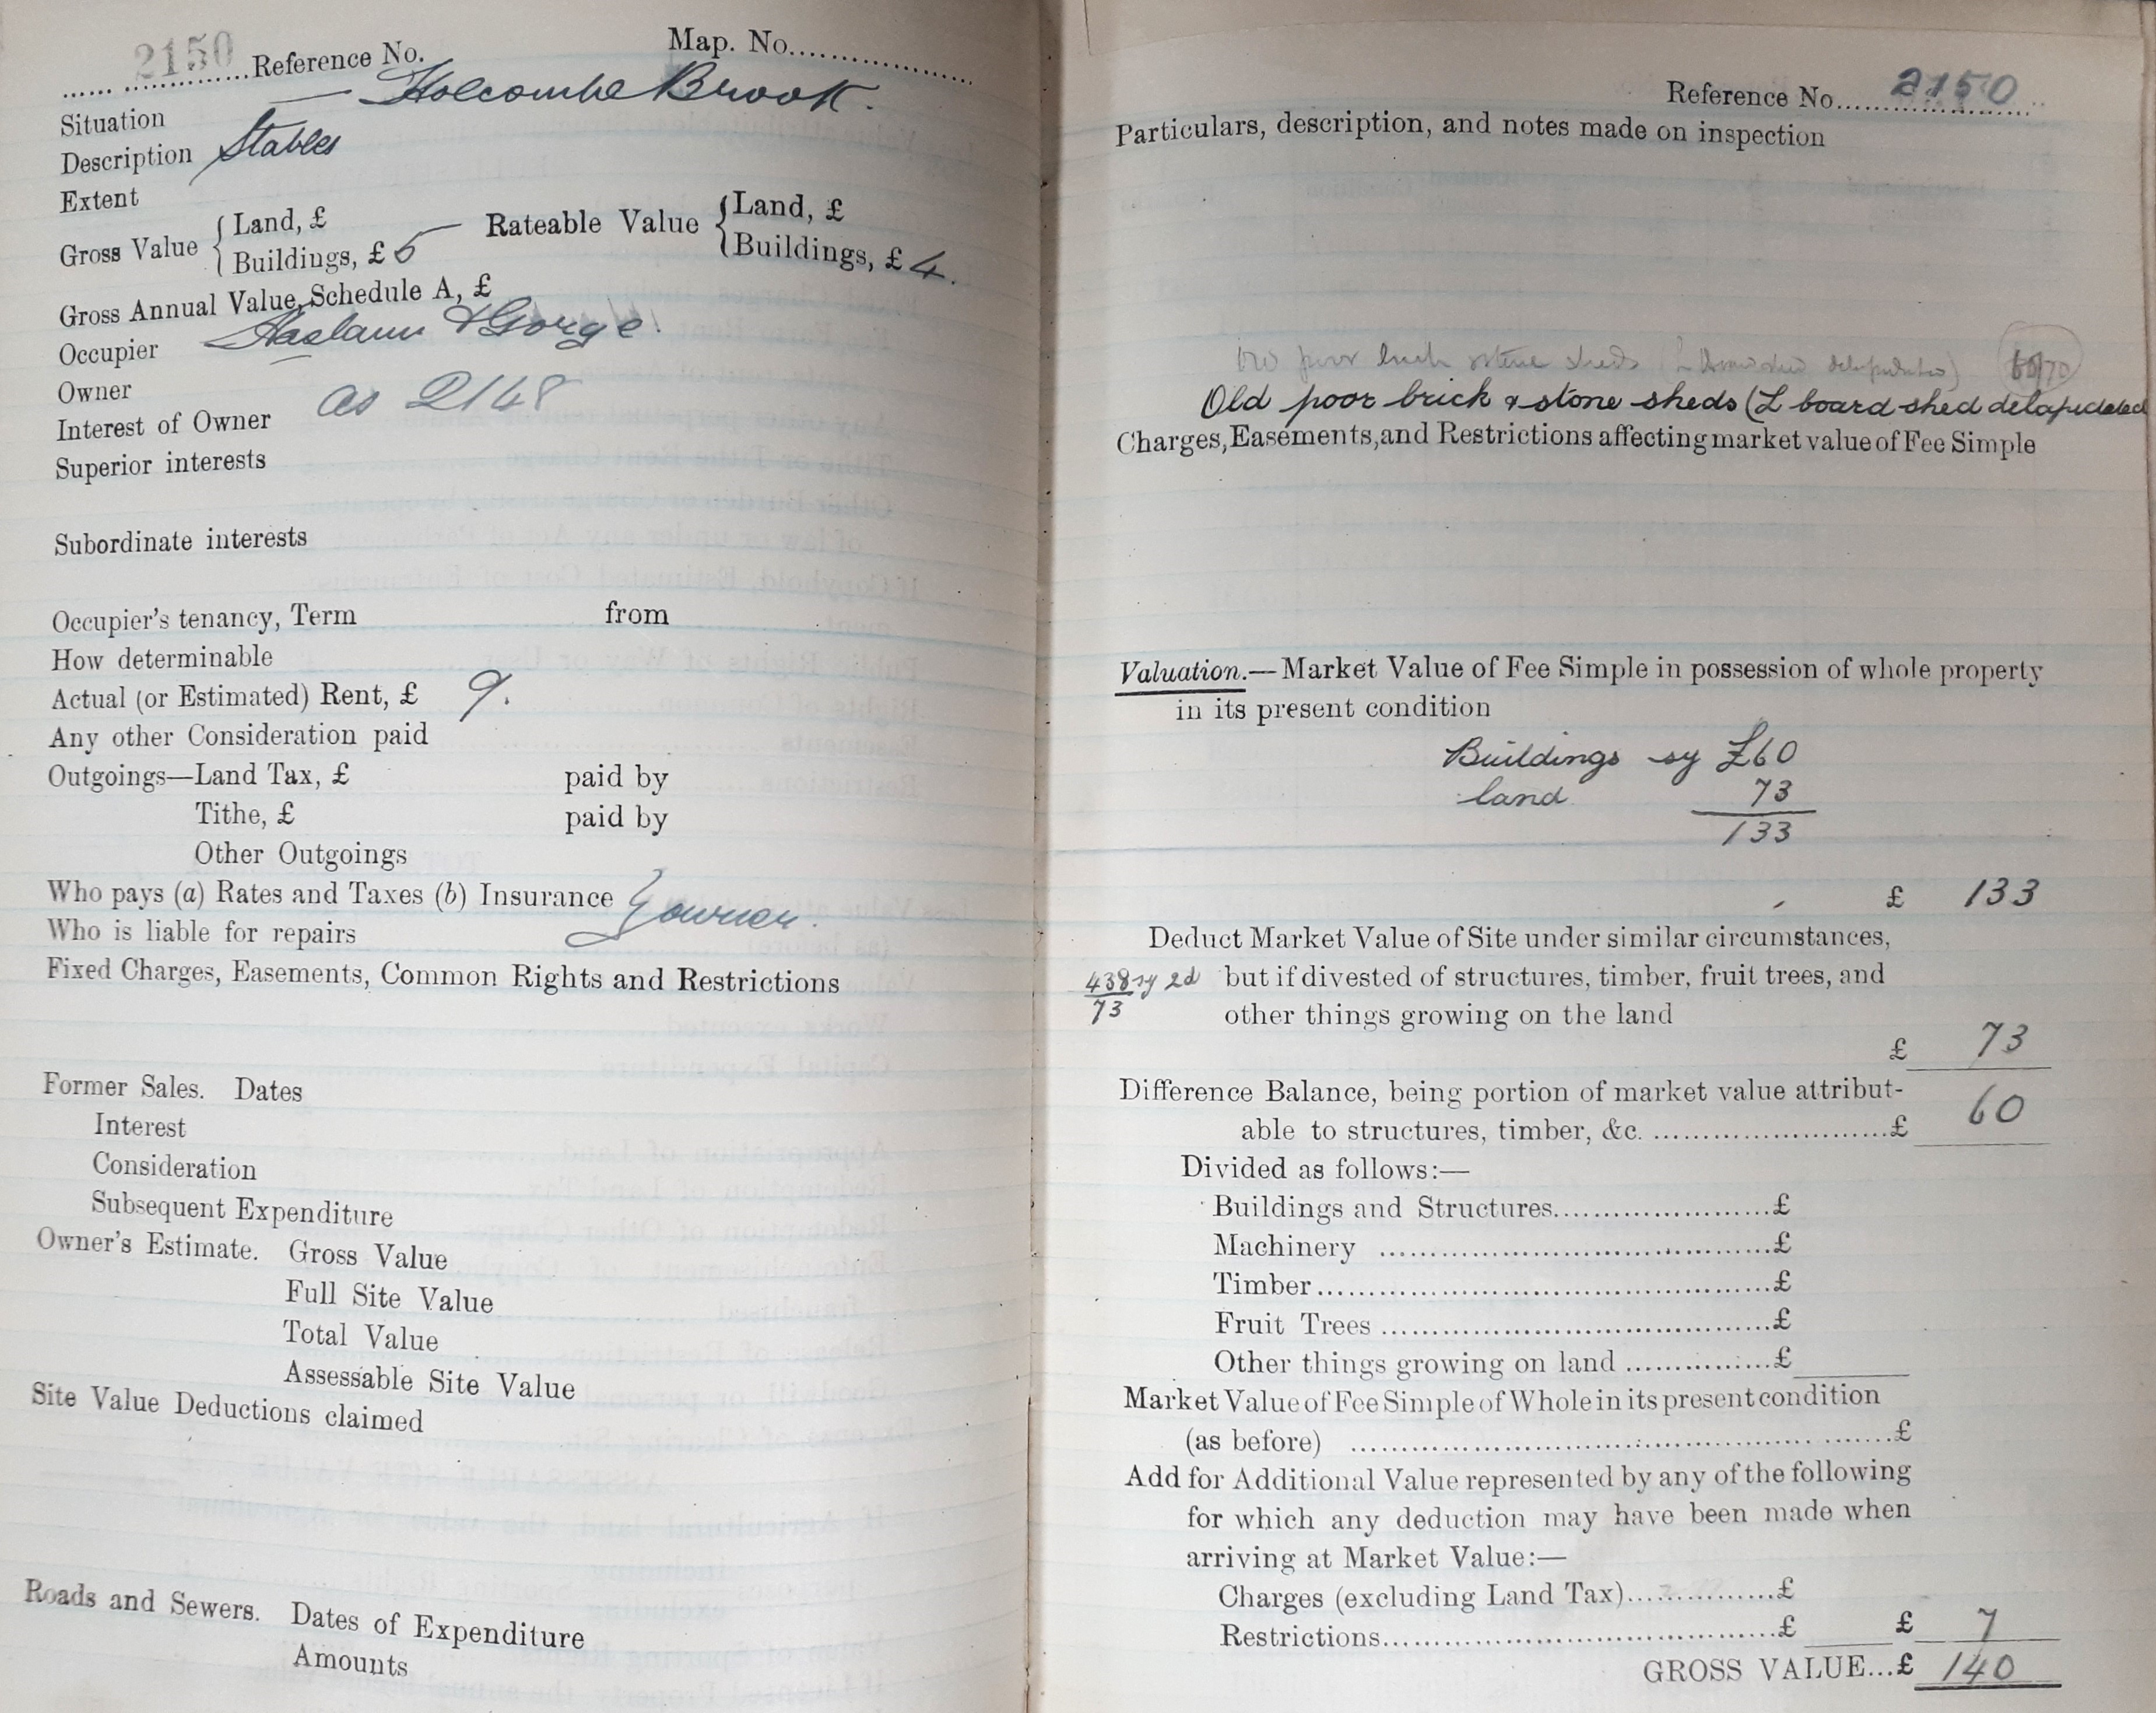 2150 Reference No. Map. No.
Situation — Holcombe Brook.
Description Stables
Extent
Gross Value { Land, £
Buildings, £ 5 — Rateable Value { Land, £
Buildings, £ 4.
Gross Annual Value, Schedule A, £
Occupier Haslam & Gorge.
Owner
Interest of Owner as 2148
Superior interests
Subordinate interests
Occupier's tenancy, Term from
How determinable
Actual (or Estimated) Rent, £ 9.
Any other Consideration paid
Outgoings—Land Tax, £ paid by
Tithe, £ paid by
Other Outgoings
Who pays (a) Rates and Taxes (b) Insurance } owner.
Who is liable for repairs
Fixed Charges, Easements, Common Rights and Restrictions
Former Sales. Dates
Interest
Consideration
Subsequent Expenditure
Owner's Estimate. Gross Value
Full Site Value
Total Value
Assessable Site Value
Site Value Deductions claimed
Roads and Sewers. Dates of Expenditure
Amounts
Reference No. 2150
Particulars, description, and notes made on inspection
poor brick stone sheds
Old poor brick & stone sheds (L board shed delapidated
Charges, Easements, and Restrictions affecting market value of Fee Simple
Valuation.—Market Value of Fee Simple in possession of whole property
in its present condition
Buildings say £60
land 73
133
£ 133
Deduct Market Value of Site under similar circumstances,
438 sy 2d but if divested of structures, timber, fruit trees, and
73 other things growing on the land
£ 73
Difference Balance, being portion of market value attribut-
able to structures, timber, &c. £ 60
Divided as follows:—
Buildings and Structures £
Machinery £
Timber £
Fruit Trees £
Other things growing on land £
Market Value of Fee Simple of Whole in its present condition
(as before) £
Add for Additional Value represented by any of the following
for which any deduction may have been made when
arriving at Market Value:—
Charges (excluding Land Tax) £
Restrictions £ £ 7
GROSS VALUE...£ 140